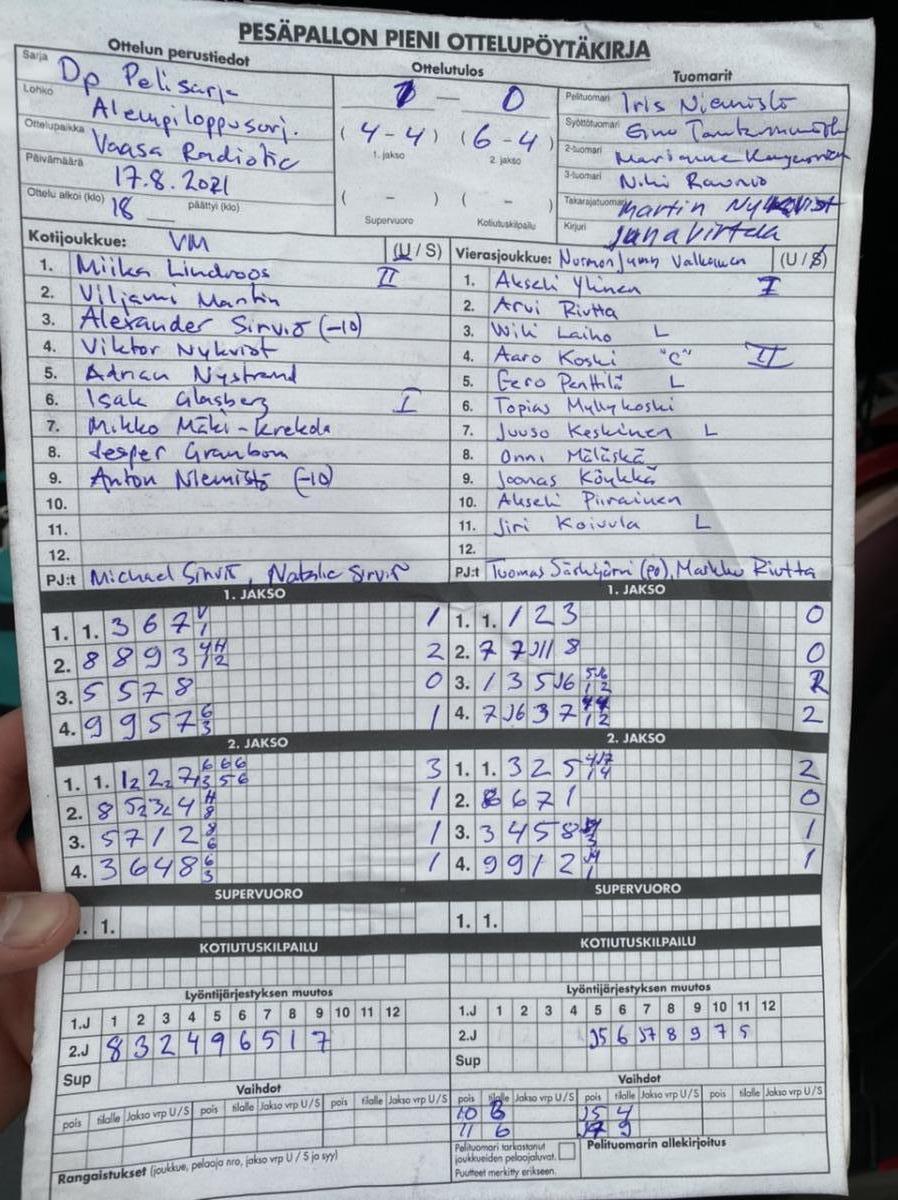 PESÄPALLON PIENI OTTELUPÖYTÄKIRJA
Ottelun perustiedot
Ottelutulos
Tuomarit
Sarja Dp Pelisarja
Lohko Alempiloppusarj.
Ottelupaikka Vaasa Radiotie
Päivämäärä 17.8.2021
Ottelu alkoi (klo) 18 päättyi (klo)
1 — 0
(4 - 4) (6 - 4)
1. jakso 2. jakso
( - ) ( - )
Supervuoro Kotiutuskilpailu
Pelituomari Iris Niemistö
Syöttötuomari Eino
2-tuomari Marianne
3-tuomari Niki Raunio
Takarajatuomari Martin Nykvist
Kirjuri Jana Virtala
Kotijoukkue: VM (U / S)
1. Miika Lindroos II
2. Viljami Mantin
3. Alexander Sirviö (-10)
4. Viktor Nykvist
5. Adrian Nystrand
6. Isak Glasberg I
7. Mikko Mäki-Krekola
8. Jesper Granbom
9. Anton Niemistö (-10)
10.
11.
12.
PJ:t Michael Sirviö, Natalie Sirviö
Vierasjoukkue: Nurmon Jymy Valkoinen (U / S)
1. Akseli Ylinen I
2. Arvi Riutta
3. Wili Laiho L
4. Aaro Koski "C" II
5. Eero Penttilä L
6. Topias Myllykoski
7. Juuso Keskinen L
8. Onni Mäläskä
9. Joonas Köykkä
10. Akseli Piirainen
11. Jiri Koivula L
12.
PJ:t Tuomas Särkijärvi (po), Markku Riutta
1. JAKSO
1. 1. 3 6 7 1
2. 8 8 9 3 2
3. 5 5 7 8 0
4. 9 9 5 7 6 3 1
1. JAKSO
1. 1. 1 2 3 0
2. 7 7 J11 8 0
3. 1 3 5 J6
4. 7 J6 3 7 2
2. JAKSO
1. 1. 3
2. 8 1
3. 5 7 1 2 8 6 1
4. 3 6 4 8 6 3 1
2. JAKSO
1. 1. 3 2 5 2
2. 6 7 1 0
3. 3 4 5 8 1
4. 9 9 1 2 1
SUPERVUORO
1. 1.
SUPERVUORO
1. 1.
KOTIUTUSKILPAILU
KOTIUTUSKILPAILU
Lyöntijärjestyksen muutos
1.J 1 2 3 4 5 6 7 8 9 10 11 12
2.J 8 3 2 4 9 6 5 1 7
Sup
Lyöntijärjestyksen muutos
1.J 1 2 3 4 5 6 7 8 9 10 11 12
2.J J5 6 J7 8 9 7 5
Sup
Vaihdot
pois tilalle Jakso vrp U / S pois tilalle Jakso vrp U / S pois tilalle Jakso vrp U / S
Vaihdot
pois tilalle Jakso vrp U / S pois tilalle Jakso vrp U / S pois tilalle Jakso vrp U / S
10 8 J5 4
11 6 9
Rangaistukset (joukkue, pelaaja nro, jakso vrp U / S ja syy)
Pelituomari tarkastanut joukkueiden pelaajaluvat.
Puutteet merkitty erikseen.
Pelituomarin allekirjoitus